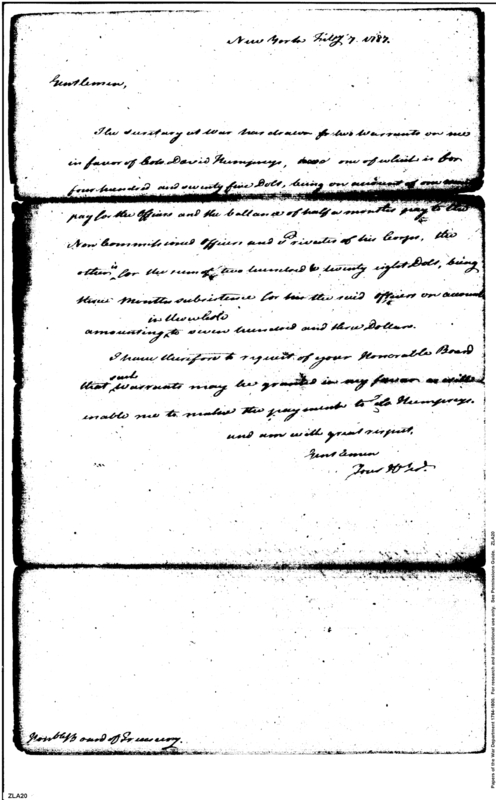 New York Feby 7. 1787.
Gentlemen,
The Secretary at War has drawn two Warrants on me
in favor of Colo. David Humphreys, one of which is for
four hundred and seventy five Dols, being on account of one
pay for the Officers and the ballance of half a months pay to the
Non Commissioned Officers and Privates of his Corps, the
other for the sum of two hundred & twenty eight Dols, being
three Months subsistence for him the said Officers on account
in the whole
amounting to seven hundred and three Dollars.
I have therefore to request of your Honorable Board
such
that Warrants may be granted in my favor as will
enable me to make the payment to Humphreys.
and am with great respect,
Gentlemen
Your
Honble Board of Treasury.
ZLA20
Papers of the War Department 1784-1800. For research and instructional use only. See Permissions Guide. ZLA20